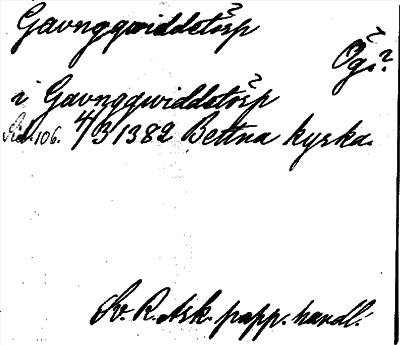 Gavnggwiddetorp ?
Ögi?
i Gavnggwiddetorp ?
Sid. 106. 4/3 1382 Bettna kyrka.
Sv. R. Ark. papp. handl.